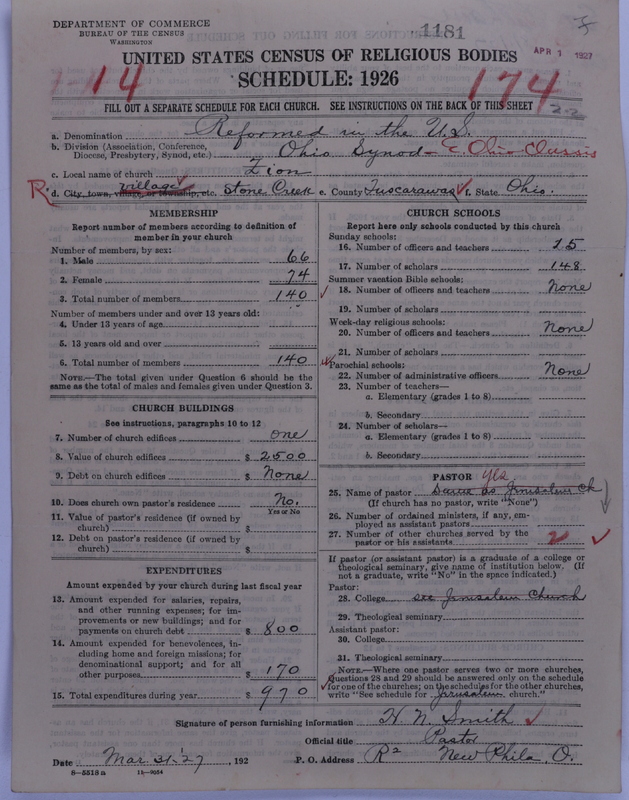 DEPARTMENT OF COMMERCE
BUREAU OF THE CENSUS
WASHINGTON
1181
APR 1 1927
UNITED STATES CENSUS OF RELIGIOUS BODIES
SCHEDULE: 1926
114
174
22
FILL OUT A SEPARATE SCHEDULE FOR EACH CHURCH. SEE INSTRUCTIONS ON THE BACK OF THIS SHEET
a. Denomination Reformed in the U.S.
b. Division (Association, Conference, Diocese, Presbytery, Synod, etc.) Ohio Synod - E. Ohio Classis
c. Local name of church Zion
R. d. City town, village, or township, etc. village Stone Creek e. County Tuscarawas f. State Ohio.
MEMBERSHIP
Report number of members according to definition of
member in your church
Number of members, by sex:
1. Male 66
2. Female 74
3. Total number of members 140
Number of members under and over 13 years old:
4. Under 13 years of age
5. 13 years old and over
6. Total number of members 140
NOTE.—The total given under Question 6 should be the
same as the total of males and females given under Question 3.
CHURCH BUILDINGS
See instructions, paragraphs 10 to 12
7. Number of church edifices one
8. Value of church edifices $ 2500
9. Debt on church edifices $ None
10. Does church own pastor's residence No.
Yes or No
11. Value of pastor's residence (if owned by
church) $
12. Debt on pastor's residence (if owned by
church) $
EXPENDITURES
Amount expended by your church during last fiscal year
13. Amount expended for salaries, repairs,
and other running expenses; for im-
provements or new buildings; and for
payments on church debt $ 800
14. Amount expended for benevolences, in-
cluding home and foreign missions; for
denominational support; and for all
other purposes $ 170
15. Total expenditures during year $ 970
CHURCH SCHOOLS
Report here only schools conducted by this church
Sunday schools:
16. Number of officers and teachers 15
17. Number of scholars 148
Summer vacation Bible schools:
18. Number of officers and teachers None
19. Number of scholars
Week-day religious schools:
20. Number of officers and teachers None
21. Number of scholars
Parochial schools:
22. Number of administrative officers None
23. Number of teachers—
a. Elementary (grades 1 to 8)
b. Secondary
24. Number of scholars—
a. Elementary (grades 1 to 8)
b. Secondary
PASTOR yes
25. Name of pastor Same as Jerusalem Ch
(If church has no pastor, write "None")
26. Number of ordained ministers, if any, em-
ployed as assistant pastors
27. Number of other churches served by the
pastor or his assistants 2
If pastor (or assistant pastor) is a graduate of a college or
theological seminary, give name of institution below. (If
not a graduate, write "No" in the space indicated.)
Pastor:
28. College see Jerusalem Church
29. Theological seminary
Assistant pastor:
30. College
31. Theological seminary
NOTE.—Where one pastor serves two or more churches,
Questions 28 and 29 should be answered only on the schedule
for one of the churches; on the schedules for the other churches,
write "See schedule for Jerusalem church."
Signature of person furnishing information H. N. Smith
Official title Pastor
Date Mar. 31. '27, 192 P. O. Address R2 New Phila, O.
8—5518 a 11—9054